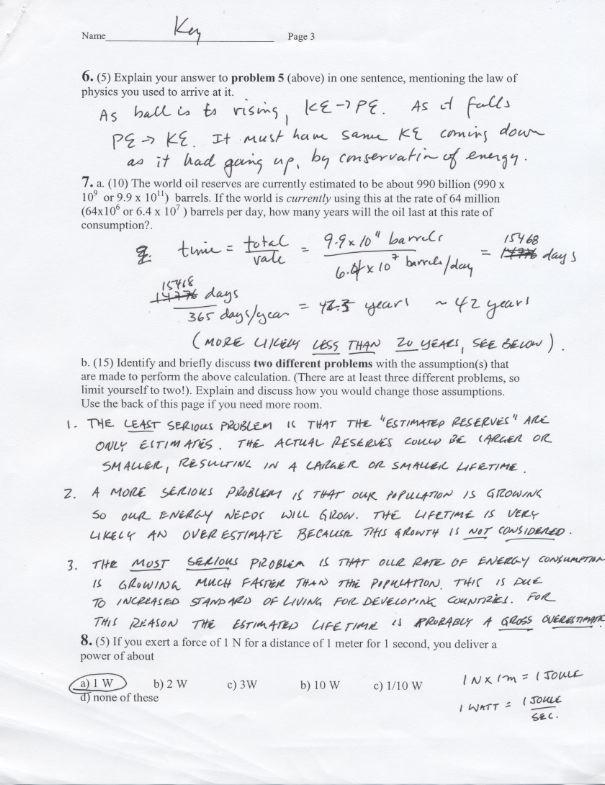 Name Key Page 3
6. (5) Explain your answer to problem 5 (above) in one sentence, mentioning the law of
physics you used to arrive at it.
As ball is to rising, KE→PE. As it falls
PE→KE. It must have same KE coming down
as it had going up, by conservation of energy.
7. a. (10) The world oil reserves are currently estimated to be about 990 billion (990 x
10⁹ or 9.9 x 10¹¹) barrels. If the world is currently using this at the rate of 64 million
(64x10⁶ or 6.4 x 10⁷ ) barrels per day, how many years will the oil last at this rate of
consumption?.
time = total / rate = 9.9 x 10¹¹ barrels / 6.4 x 10⁷ barrels/day = 15468 days
15468 days / 365 days/year = years ~ 42 years
(MORE LIKELY LESS THAN 20 YEARS, SEE BELOW).
b. (15) Identify and briefly discuss two different problems with the assumption(s) that
are made to perform the above calculation. (There are at least three different problems, so
limit yourself to two!). Explain and discuss how you would change those assumptions.
Use the back of this page if you need more room.
1. THE LEAST SERIOUS PROBLEM IS THAT THE "ESTIMATED RESERVES" ARE
ONLY ESTIMATES. THE ACTUAL RESERVES COULD BE LARGER OR
SMALLER, RESULTING IN A LARGER OR SMALLER LIFETIME.
2. A MORE SERIOUS PROBLEM IS THAT OUR POPULATION IS GROWING
SO OUR ENERGY NEEDS WILL GROW. THE LIFETIME IS VERY
LIKELY AN OVERESTIMATE BECAUSE THIS GROWTH IS NOT CONSIDERED.
3. THE MOST SERIOUS PROBLEM IS THAT OUR RATE OF ENERGY CONSUMPTION
IS GROWING MUCH FASTER THAN THE POPULATION. THIS IS DUE
TO INCREASED STANDARD OF LIVING FOR DEVELOPING COUNTRIES. FOR
THIS REASON THE ESTIMATED LIFETIME IS PROBABLY A GROSS OVERESTIMATE
8. (5) If you exert a force of 1 N for a distance of 1 meter for 1 second, you deliver a
power of about
a) 1 W b) 2 W c) 3W b) 10 W c) 1/10 W
d) none of these
1 N x 1m = 1 JOULE
1 WATT = 1 JOULE / SEC.